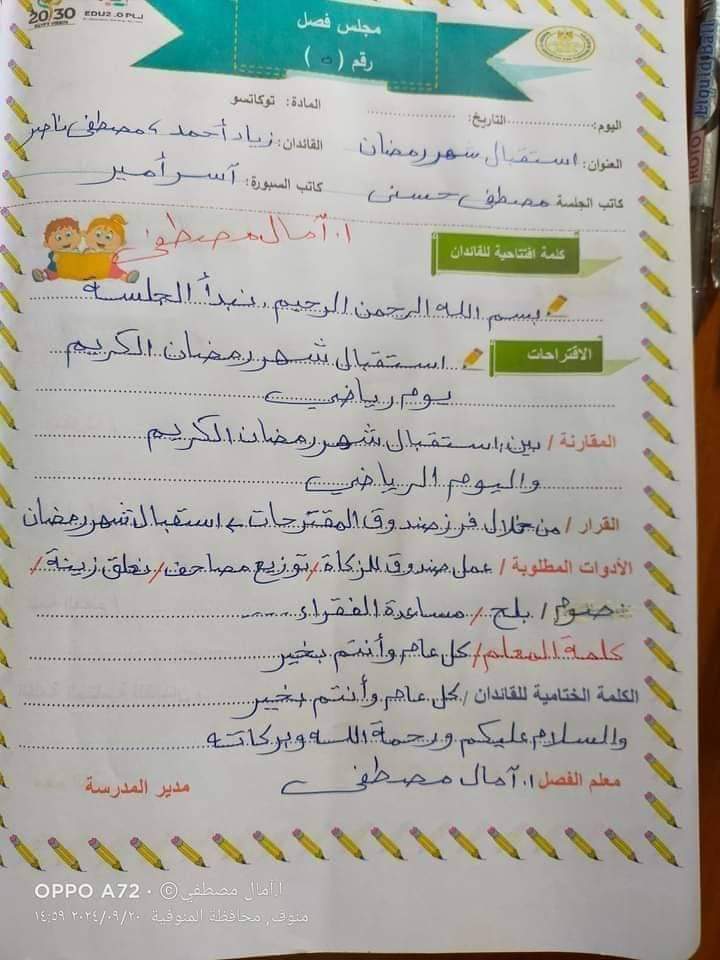 2030
EGYPT VISION
EDU2.0 PLJ
مجلس فصل
رقم (٥)
المادة: توكاتسو
اليوم: التاريخ:
العنوان: استقبال شهر رمضان القائدان: زياد أحمد، مصطفى ناصر
كاتب الجلسة مصطفى حسنى كاتب السبورة: آسر أمير
كلمة افتتاحية للقائدان ا. آمال مصطفى
بسم الله الرحمن الرحيم. نبدأ الجلسة
الاقتراحات استقبال شهر رمضان الكريم
يوم رياضي
المقارنة / بين استقبال شهر رمضان الكريم
واليوم الرياضي
القرار / من خلال فرز صندوق المقترحات، استقبال شهر رمضان
الأدوات المطلوبة / عمل صندوق للزكاة / توزيع مصاحف / نعلق زينة /
نصوم / بلح / مساعدة الفقراء
كلمة المعلم / كل عام وأنتم بخير
الكلمة الختامية للقائدان / كل عام وأنتم بخير
والسلام عليكم ورحمة الله وبركاته
معلم الفصل ا. آمال مصطفى مدير المدرسة
OPPO A72 · © ا.آمال مصطفي
منوف, محافظة المنوفية ٢٠٢٤/٠٩/٢٠ ١٤:٥٩
Liquid Ball
ROTO